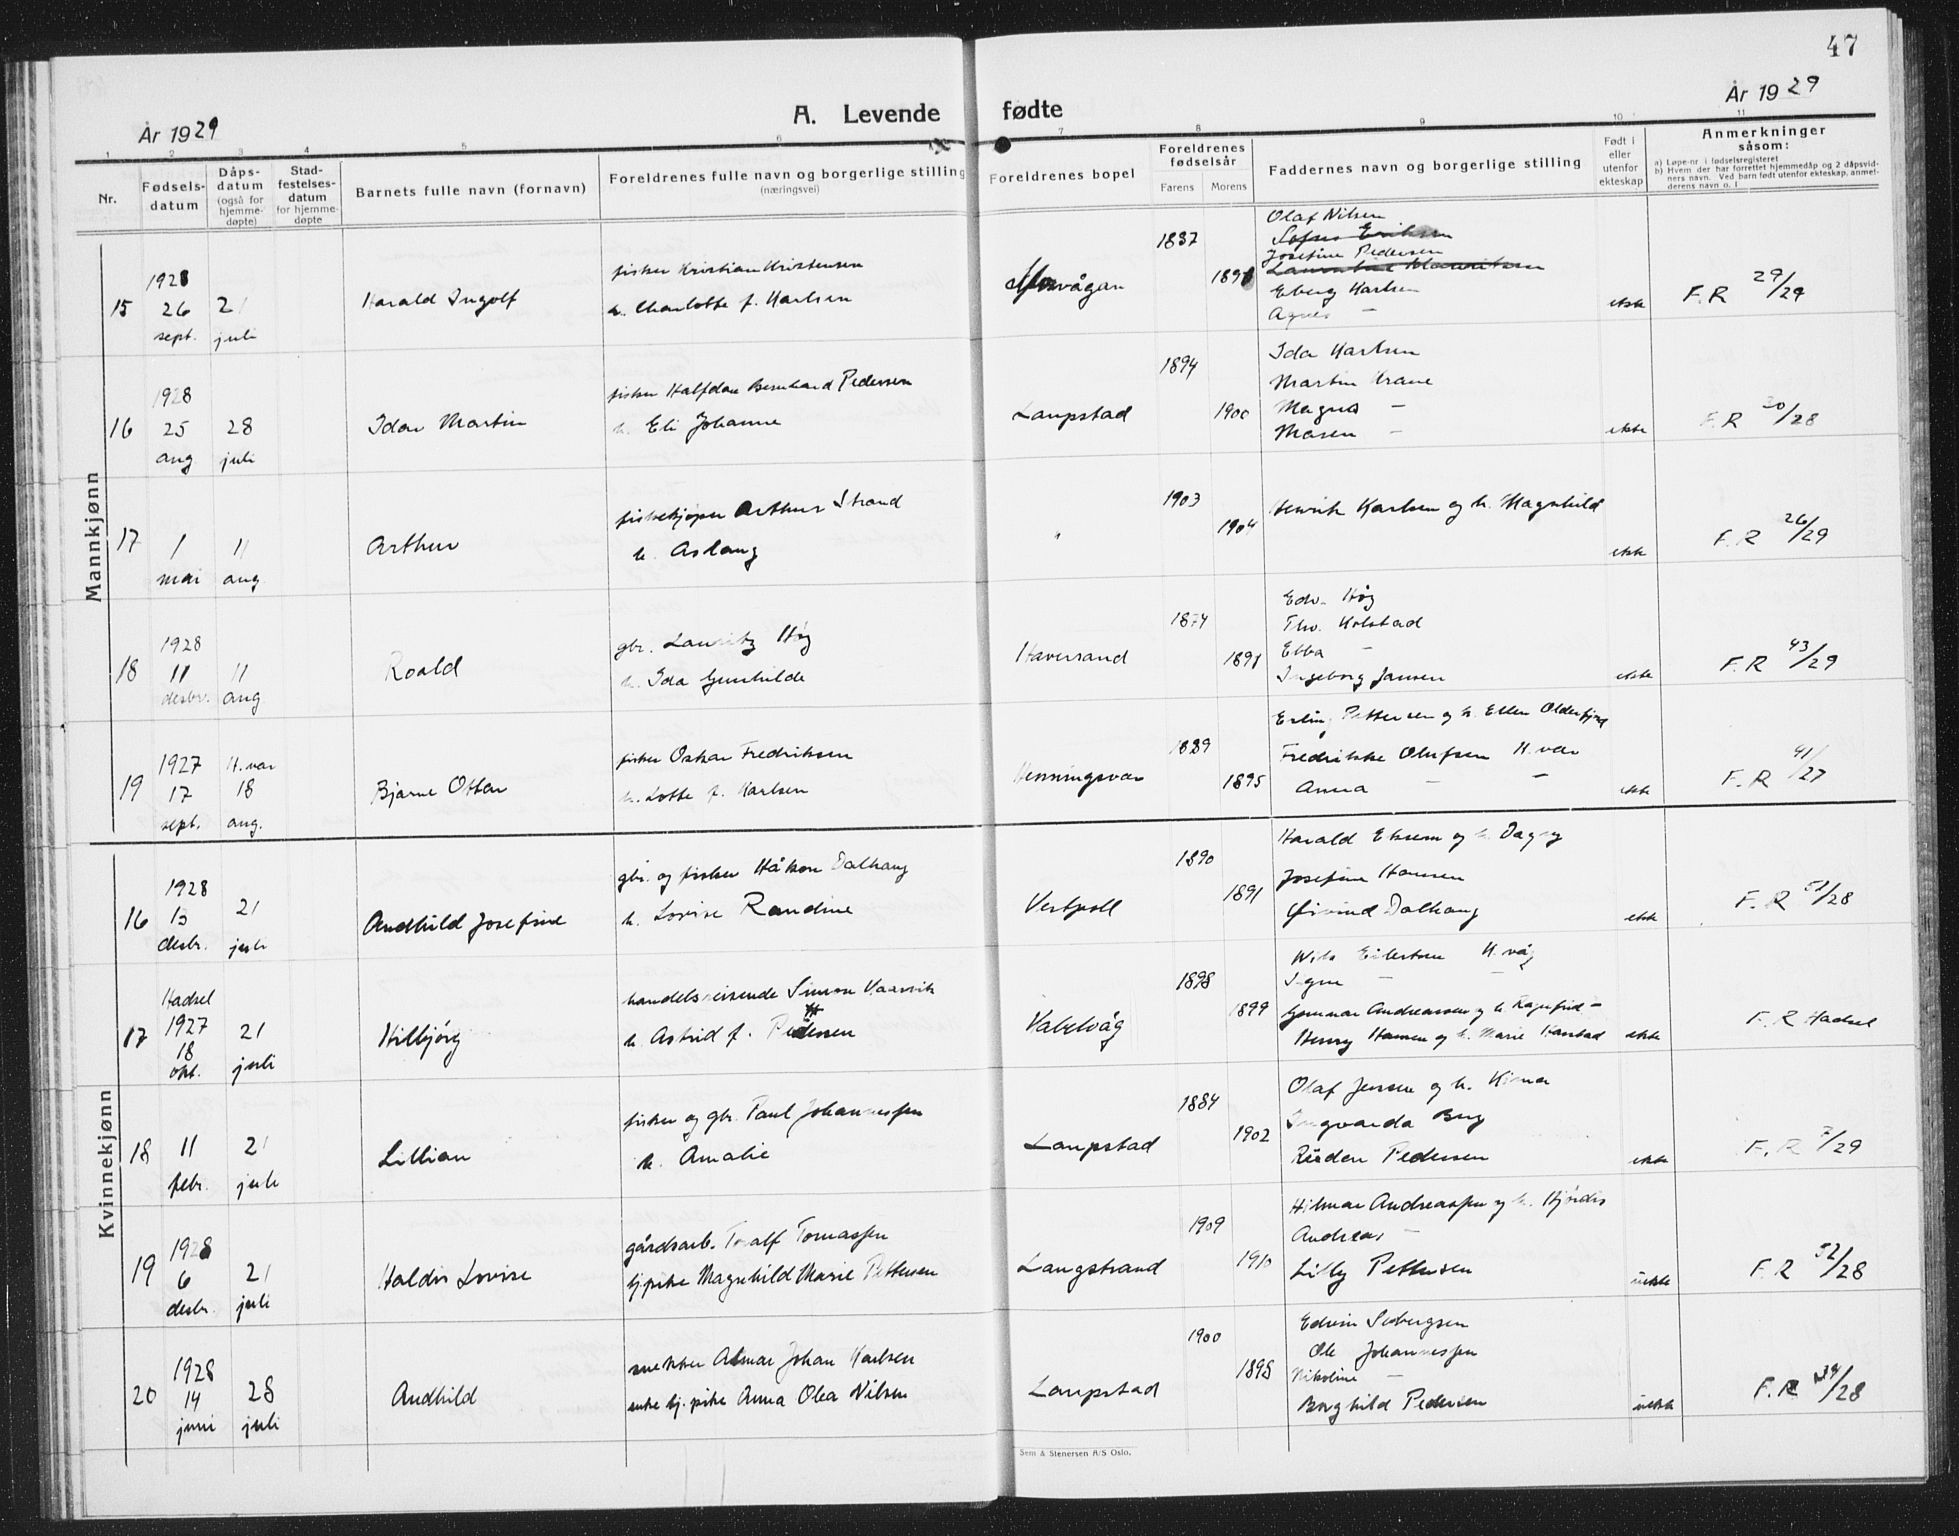 47
År 1929
A. Levende fødte
År 1929
1 2 3 4 5 6 7 8 9 10 11
Nr.
Fødselsdatum
Dåpsdatum (også for hjemmedøpte)
Stadfestelsesdatum for hjemmedøpte
Barnets fulle navn (fornavn)
Foreldrenes fulle navn og borgerlige stilling (næringsvei)
Foreldrenes bopel
Foreldrenes fødselsår
Farens Morens
Faddernes navn og borgerlige stilling
Født i eller utenfor ekteskap
Anmerkninger såsom:
a) Løpe-nr. i fødselsregisteret
b) Hvem der har forrettet hjemmedåp og 2 dåpsvidners navn. Ved barn født utenfor ekteskap, anmerderens navn o. l
Mannkjønn
15
1928
26 sept.
21 juli
Harald Ingolf
fisker Kristian Kristensen
h. Charlotte f. Karlsen
1887
Olaf Nilsen
Josefine Pedersen
Eberg Karlsen
Agnes —
ekte
F.R 29/29
16
1928
25 ang
28 juli
Idar Martin
fisker Halfdan Bernhard Pedersen
h. Eli Johanne
Laupstad
1894
1900
Ida Karlsen
Martin Krane
Magna —
Maren —
ekte
F.R 30/28
17
1 mai
11 aug
Arthur
fiskekjøper Arthur Strand
h. Aslaug
"
1903
1904
Henrik Karlsen og h. Magnhild
ekte
F.R 26/29
18
1928
11 desbr.
11 aug
Roald
gbr. Lauritz Høg
h. Ida Gunhilde
Haversand
1874
1891
Edv. Høg
Tho. Kolstad
Ebba —
Ingeborg Jansen
ekte
F.R 43/29
19
1927
17 sept.
H.vær
18 aug.
Bjarne Ottar
fisker Oskar Fredriksen
h. Lotte f. Karlsen
Henningsvær
1889
1895
Erling Pettersen og h. Ellen Olderfjord
Fredrikke Olufsen H.vær
Anna — —
ekte
F.R 41/27
Kvinnekjønn
16
1928
13 desbr.
21 juli
Andhild Josefine
gbr. og fisker Håkon Dalhaug
h. Lovise Randine
Vestpoll
1890
1891
Harald Eksem og h. Dagny
Josefine Hansen
Øivind Dalhaug
ekte
F.R 51/28
17
Hadsel
1927
18 okt.
21 juli
Hilbjørg
handelsreisende Simon Vaarvik
h. Astrid f. Pedersen
Kabelvåg
1898
1899
Nils Eilertsen H.våg
Signe — —
Gunnar Andreassen og h. Ragnfrid —
Henry Hansen og h. Marie Karstad
ekte
F.R Hadsel
18
11 febr.
21 juli
Lillian
fisker og gbr. Paul Johannessen
h. Amalie
Laupstad
1884
1902
Olaf Jensen og h.
Ingvarda Berg
Reidar Pedersen
ekte
F.R 7/29
19
1928
6 desbr.
21 juli
Haldis Lovise
gårdsarb. Toralf Tomassen
tj.pike Magnhild Marie Pettersen
Langstrand
1909
1910
Hilmar Andreassen og h. Hjørdis
Andreas —
Lilly Pettersen
uekte
F.R 52/28
20
1928
14 juni
28 juli
Andhild
snekker Almar Johan Karlsen
enke tj.pike Anna Olea Nilsen
Laupstad
1900
1898
Edvin Sebergsen
Ole Johannessen
Nikoline —
Borghild Pedersen
uekte
F.R 34/28
Sem & Stenersen A/S Oslo.